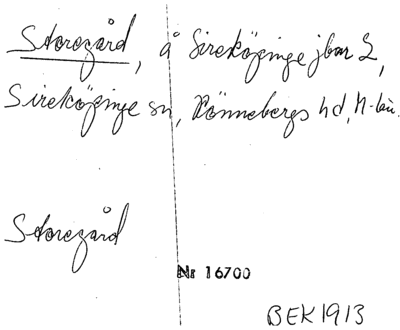 Storegård, å Sireköpinge jbnr 2,
Sireköpinge sn, Rönnebergs hd, M-län.
Storegård
Nr 16700
BEK 1913